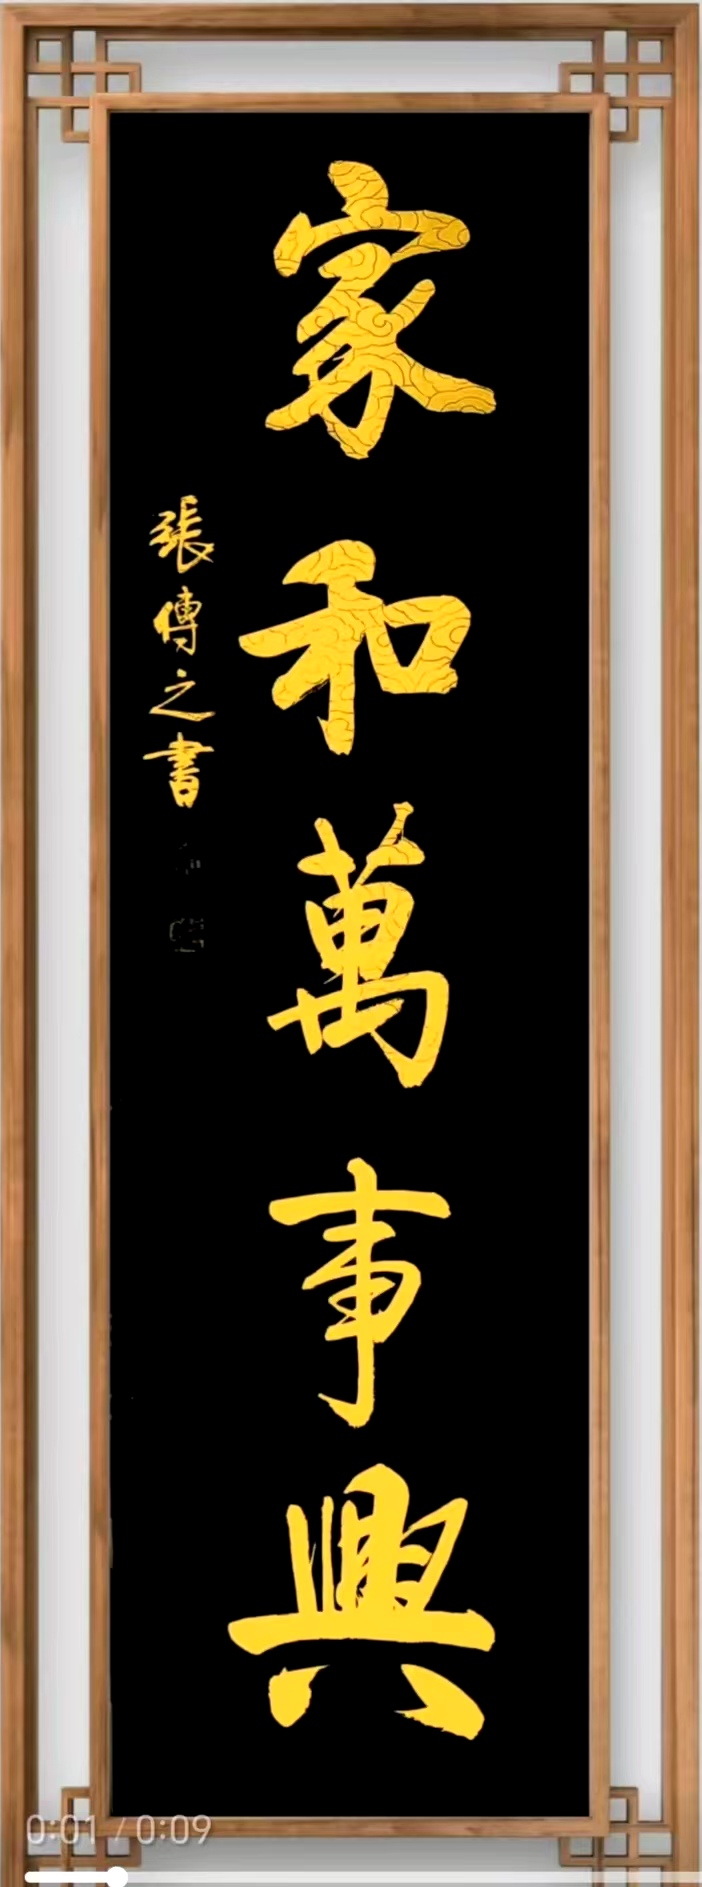 家和萬事興
張傳之書
0:01 / 0:09